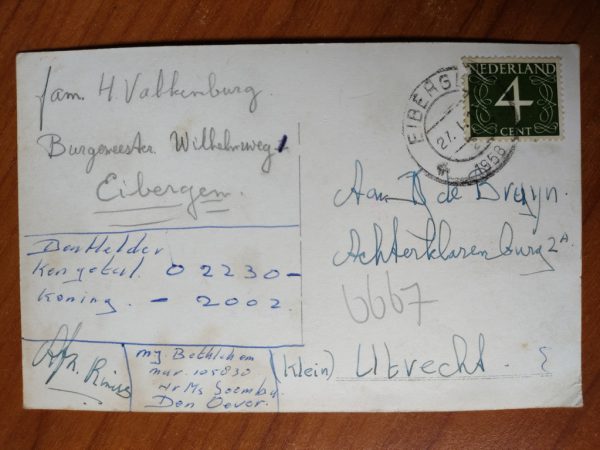 fam. H. Valkenburg.
Burgemeester Wilhelmweg 1
Eibergen.
Den Helder
Kengetal. 0 2230-
Koning. - 2002
Afz.
mej Bethlehem
mar. 105830
Hr Ms Soemba
Den Oever.
EIBERGEN
27.
1958
NEDERLAND
4
CENT
Aan de Bruyn.
Achterklarenburg 2A
6667
(Klein) Utrecht.